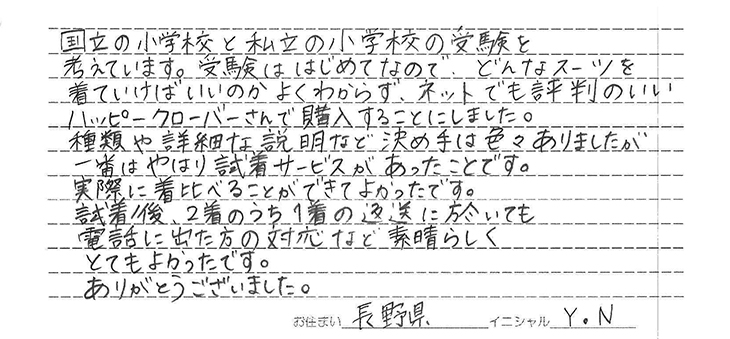 国立の小学校と私立の小学校の受験を
考えています。受験ははじめてなので、どんなスーツを
着ていけばいいのかよくわからず、ネットでも評判のいい
ハッピークローバーさんで購入することにしました。
種類や詳細な説明など決め手は色々ありましたが
一番はやはり試着サービスがあったことです。
実際に着比べることができてよかったです。
試着後、2着のうち1着の返送に於いても
電話に出た方の対応など素晴らしく
とてもよかったです。
ありがとうございました。
お住まい 長野県 イニシャル Y.N